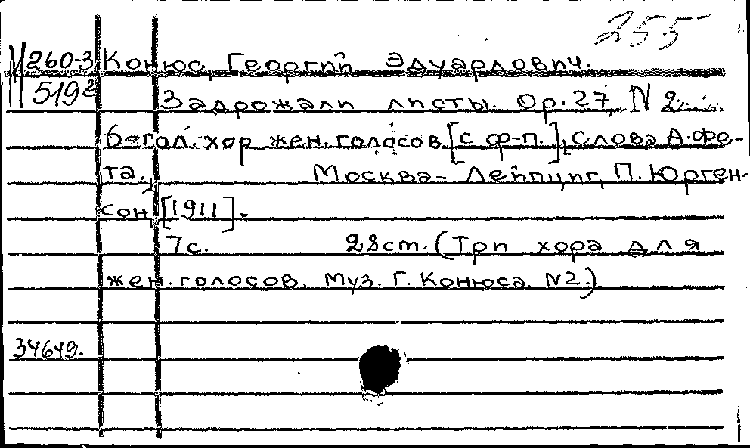 255
М 260-3 Конюс, Георгий Эдуардович.
519² Задрожали листы. Op.27, N 2
6-гол. хор жен. голосов [с ф-п.]. Слова А. Фе-
та. Москва - Лейпциг, П. Юрген-
сон, [1911].
7с. 28cm. (Три хора для
жен. голосов. Муз. Г. Конюса. N2.)
34649.